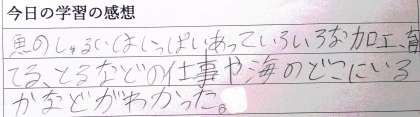 今日の学習の感想
魚のしゅるいはいっぱいあっていろいろな加工、育
てる、とるなどの仕事や海のどこにいる
かなどがわかった。